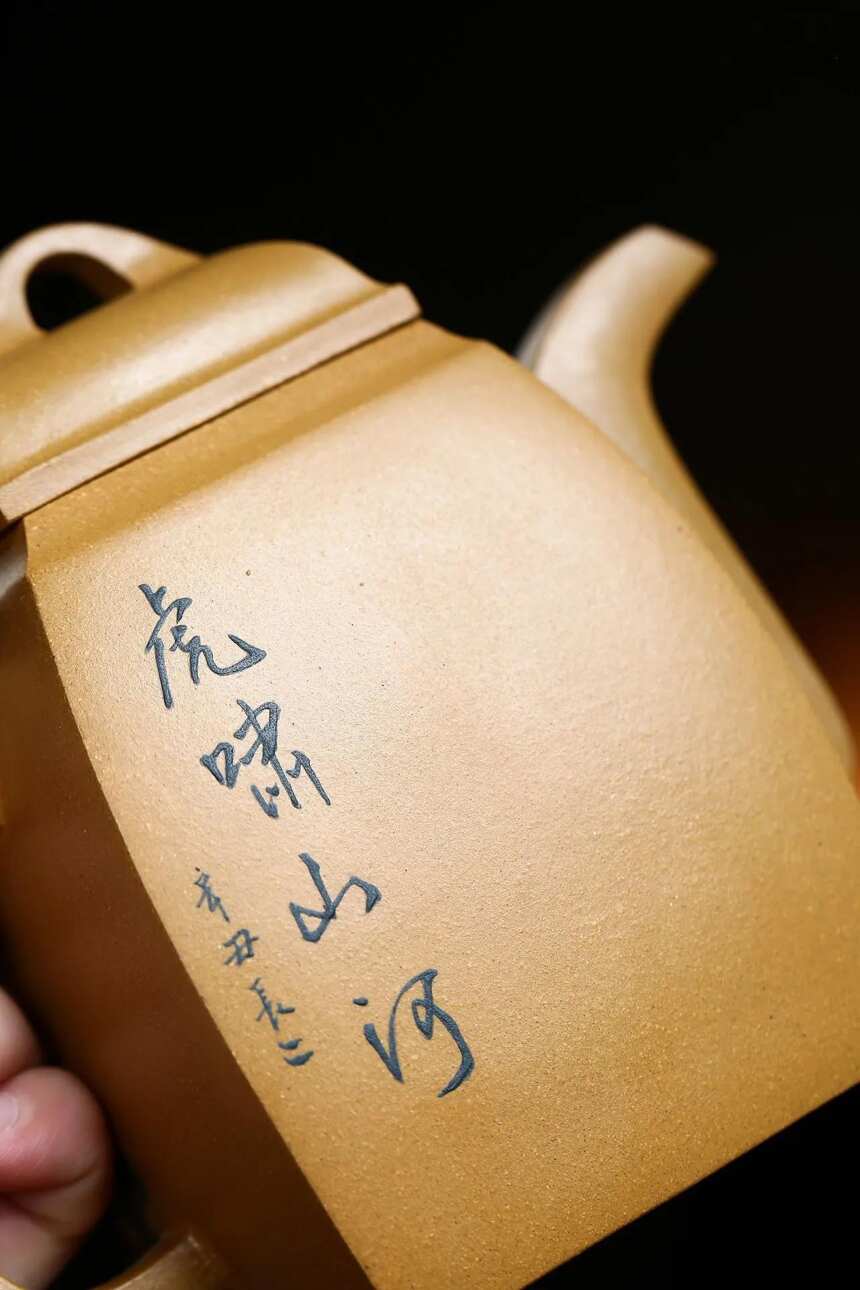 虎啸山河
辛丑長二